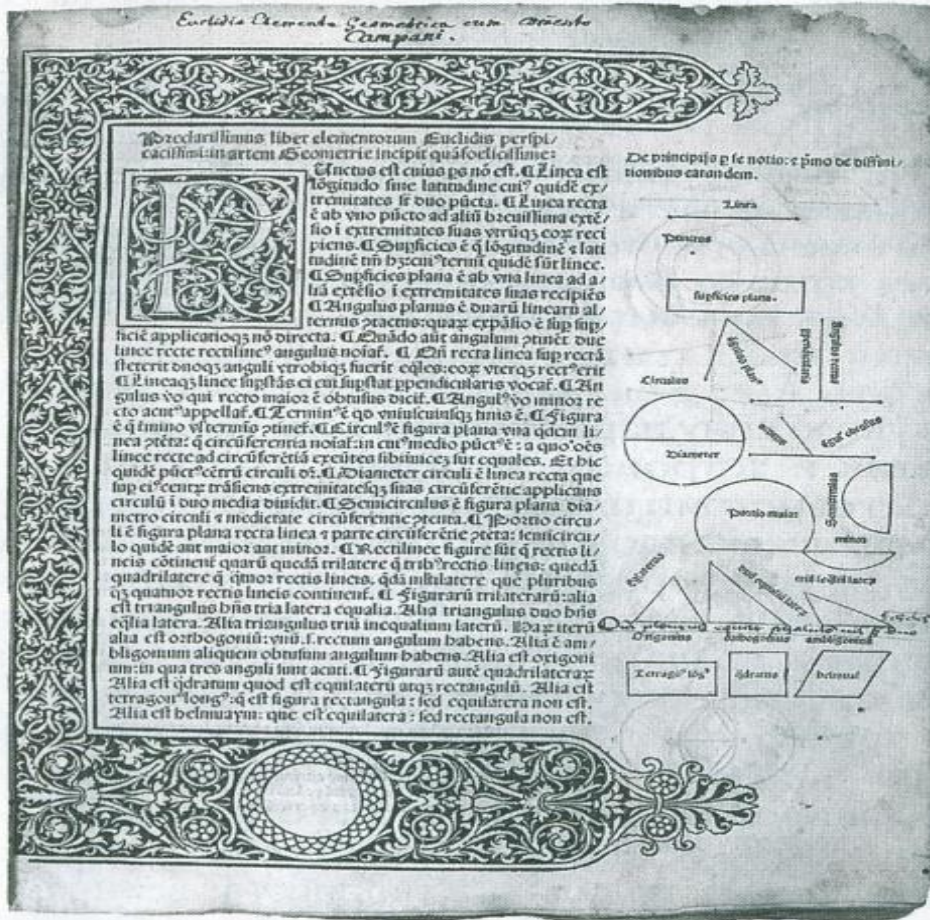 Euclidis Elementa Geometrica cum
Campani.
Preclarissimus liber elementorum Euclidis perspi/
cacissimi: in artem Geometrie incipit quãfoelicissime:
Punctus est cuius ps nõ est. ¶ Linea est
lõgitudo sine latitudine cuiꝰ quidẽ ex/
tremitates st duo pũcta. ¶ Linea recta
ẽ ab vno pũcto ad aliũ breuissima extẽ/
sio ĩ extremitates suas vtrũqꝫ eoꝝ reci
piens. ¶ Supficies ẽ q̃ lõgitudinẽ ⁊ lati
tudinẽ tm̃ hꝫ: cuiꝰ termi quidẽ sũt linee.
¶ Supficies plana ẽ ab vna linea ad a/
liã extẽsio ĩ extremitates suas recipiẽs
¶ Angulus planus ẽ duarũ linearũ al/
ternus ↄtactus: quaꝝ expãsio ẽ sup sup/
ficiẽ applicatioqꝫ nõ directa. ¶ Quãdo aũt angulum ↄtinẽt due
linee recte rectilineꝰ angulus noiaf̃. ¶ Qñ recta linea sup rectã
steterit duoqꝫ anguli vtrobiqꝫ fuerit eq̃les: eoꝝ vterqꝫ rectꝰerit
¶ Lineaqꝫ linee supstãs ei cui supstat ppendicularis vocaf̃. ¶ An
gulus vo qui recto maior ẽ obtusus dicif̃. ¶ Angulꝰ vo minor re
cto acutꝰ appellaf̃. ¶ Terminꝰ ẽ qd vniuscuiusqꝫ finis ẽ. ¶ Figura
ẽ q̃ tmino vł terminis ↄtinef̃. ¶ Circulꝰ ẽ figura plana vna qdem li/
nea ↄtẽta: q̃ circũferentia noiaf̃: in cuiꝰ medio pũctꝰ ẽ: a quo oẽs
linee recte ad circũferẽtiã exeũtes sibiinuicẽ sut equales. Et hic
quidẽ pũctꝰ cẽtrũ circuli dr̃. ¶ Diameter circuli ẽ linea recta que
sup eiꝰ centꝝ trãsiens extremitatesqꝫ suas circũferẽtie applicans
circulũ ĩ duo media diuidit. ¶ Semicirculus ẽ figura plana dia/
metro circuli ⁊ medietate circũferentie ↄtenta. ¶ Portio circu/
li ẽ figura plana recta linea ⁊ parte circũferẽtie ↄtẽta: semicircu/
lo quidẽ aut maior aut minor. ¶ Rectilinee figure sũt q̃ rectis li/
neis cõtinent̃ quarũ quedã trilatere q̃ tribꝰ rectis lineis: quedã
quadrilatere q̃ qtuor rectis lineis. qdã mltilatere que pluribus
qꝫ quatuor rectis lineis continent̃. ¶ Figurarũ trilaterarũ: alia
est triangulus hñs tria latera equalia. Alia triangulus duo hñs
eq̃lia latera. Alia triangulus triũ inequalium laterũ. Haꝝ iterũ
alia est orthogoniũ: vnũ .s. rectum angulum habens. Alia ẽ am/
bligonium aliquem obtusum angulum habens. Alia est oxigoni
um: in qua tres anguli sunt acuti. ¶ Figurarũ autẽ quadrilateraꝝ
Alia est qdratum quod est equilaterũ atqꝫ rectangulũ. Alia est
tetragonꝰ longꝰ: q̃ est figura rectangula: sed equilatera non est.
Alia est helmuaym: que est equilatera: sed rectangula non est.
De principijs p se notis: ⁊ pmo de diffini/
tionibus earandem.
Linea
Punctus
supficies plana.
ppendicularis
Circulus
Diameter
acutus
obtusus
Portio maior
Semicirculus
minor
Oxigonius
Orthogonius
ambligonius
Tetragonꝰ lõgꝰ
qdratus